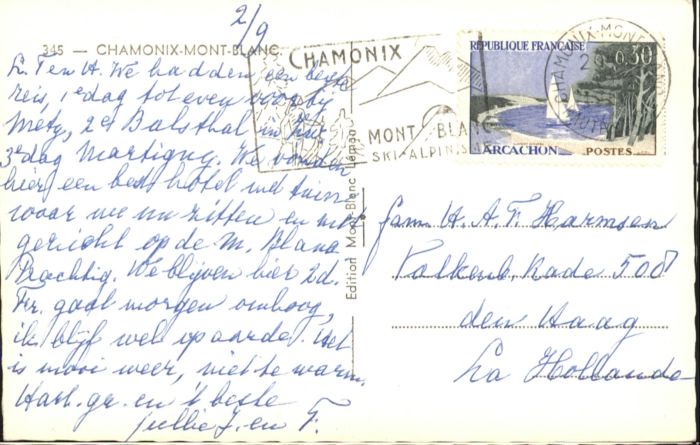 2/9
345 — CHAMONIX-MONT-BLANC
L. T en H. We hadden een beste
reis, 1e dag tot even voorbij
Metz, 2e Balsthal in het
3e dag Martigny. We vonden
hier een best hotel met tuin
waar we nu zitten en met
gezicht op de M. Blanc
Prachtig. We blijven hier 2d.
Fr. gaat morgen omhoog,
ik blijf wel op aarde. Het
is mooi weer, niet te warm.
Hart. gr. en 't beste
jullie J. en F.
Edition Mont-Blanc Léman
CHAMONIX
MONT BLANC
SKI-ALPINIS
CHAMONIX-MONT-BLANC
RÉPUBLIQUE FRANÇAISE
0,30
ARCACHON POSTES
fam. H. A. F. Harmsen
Valkenb. Kade 508
den Haag
La Hollande